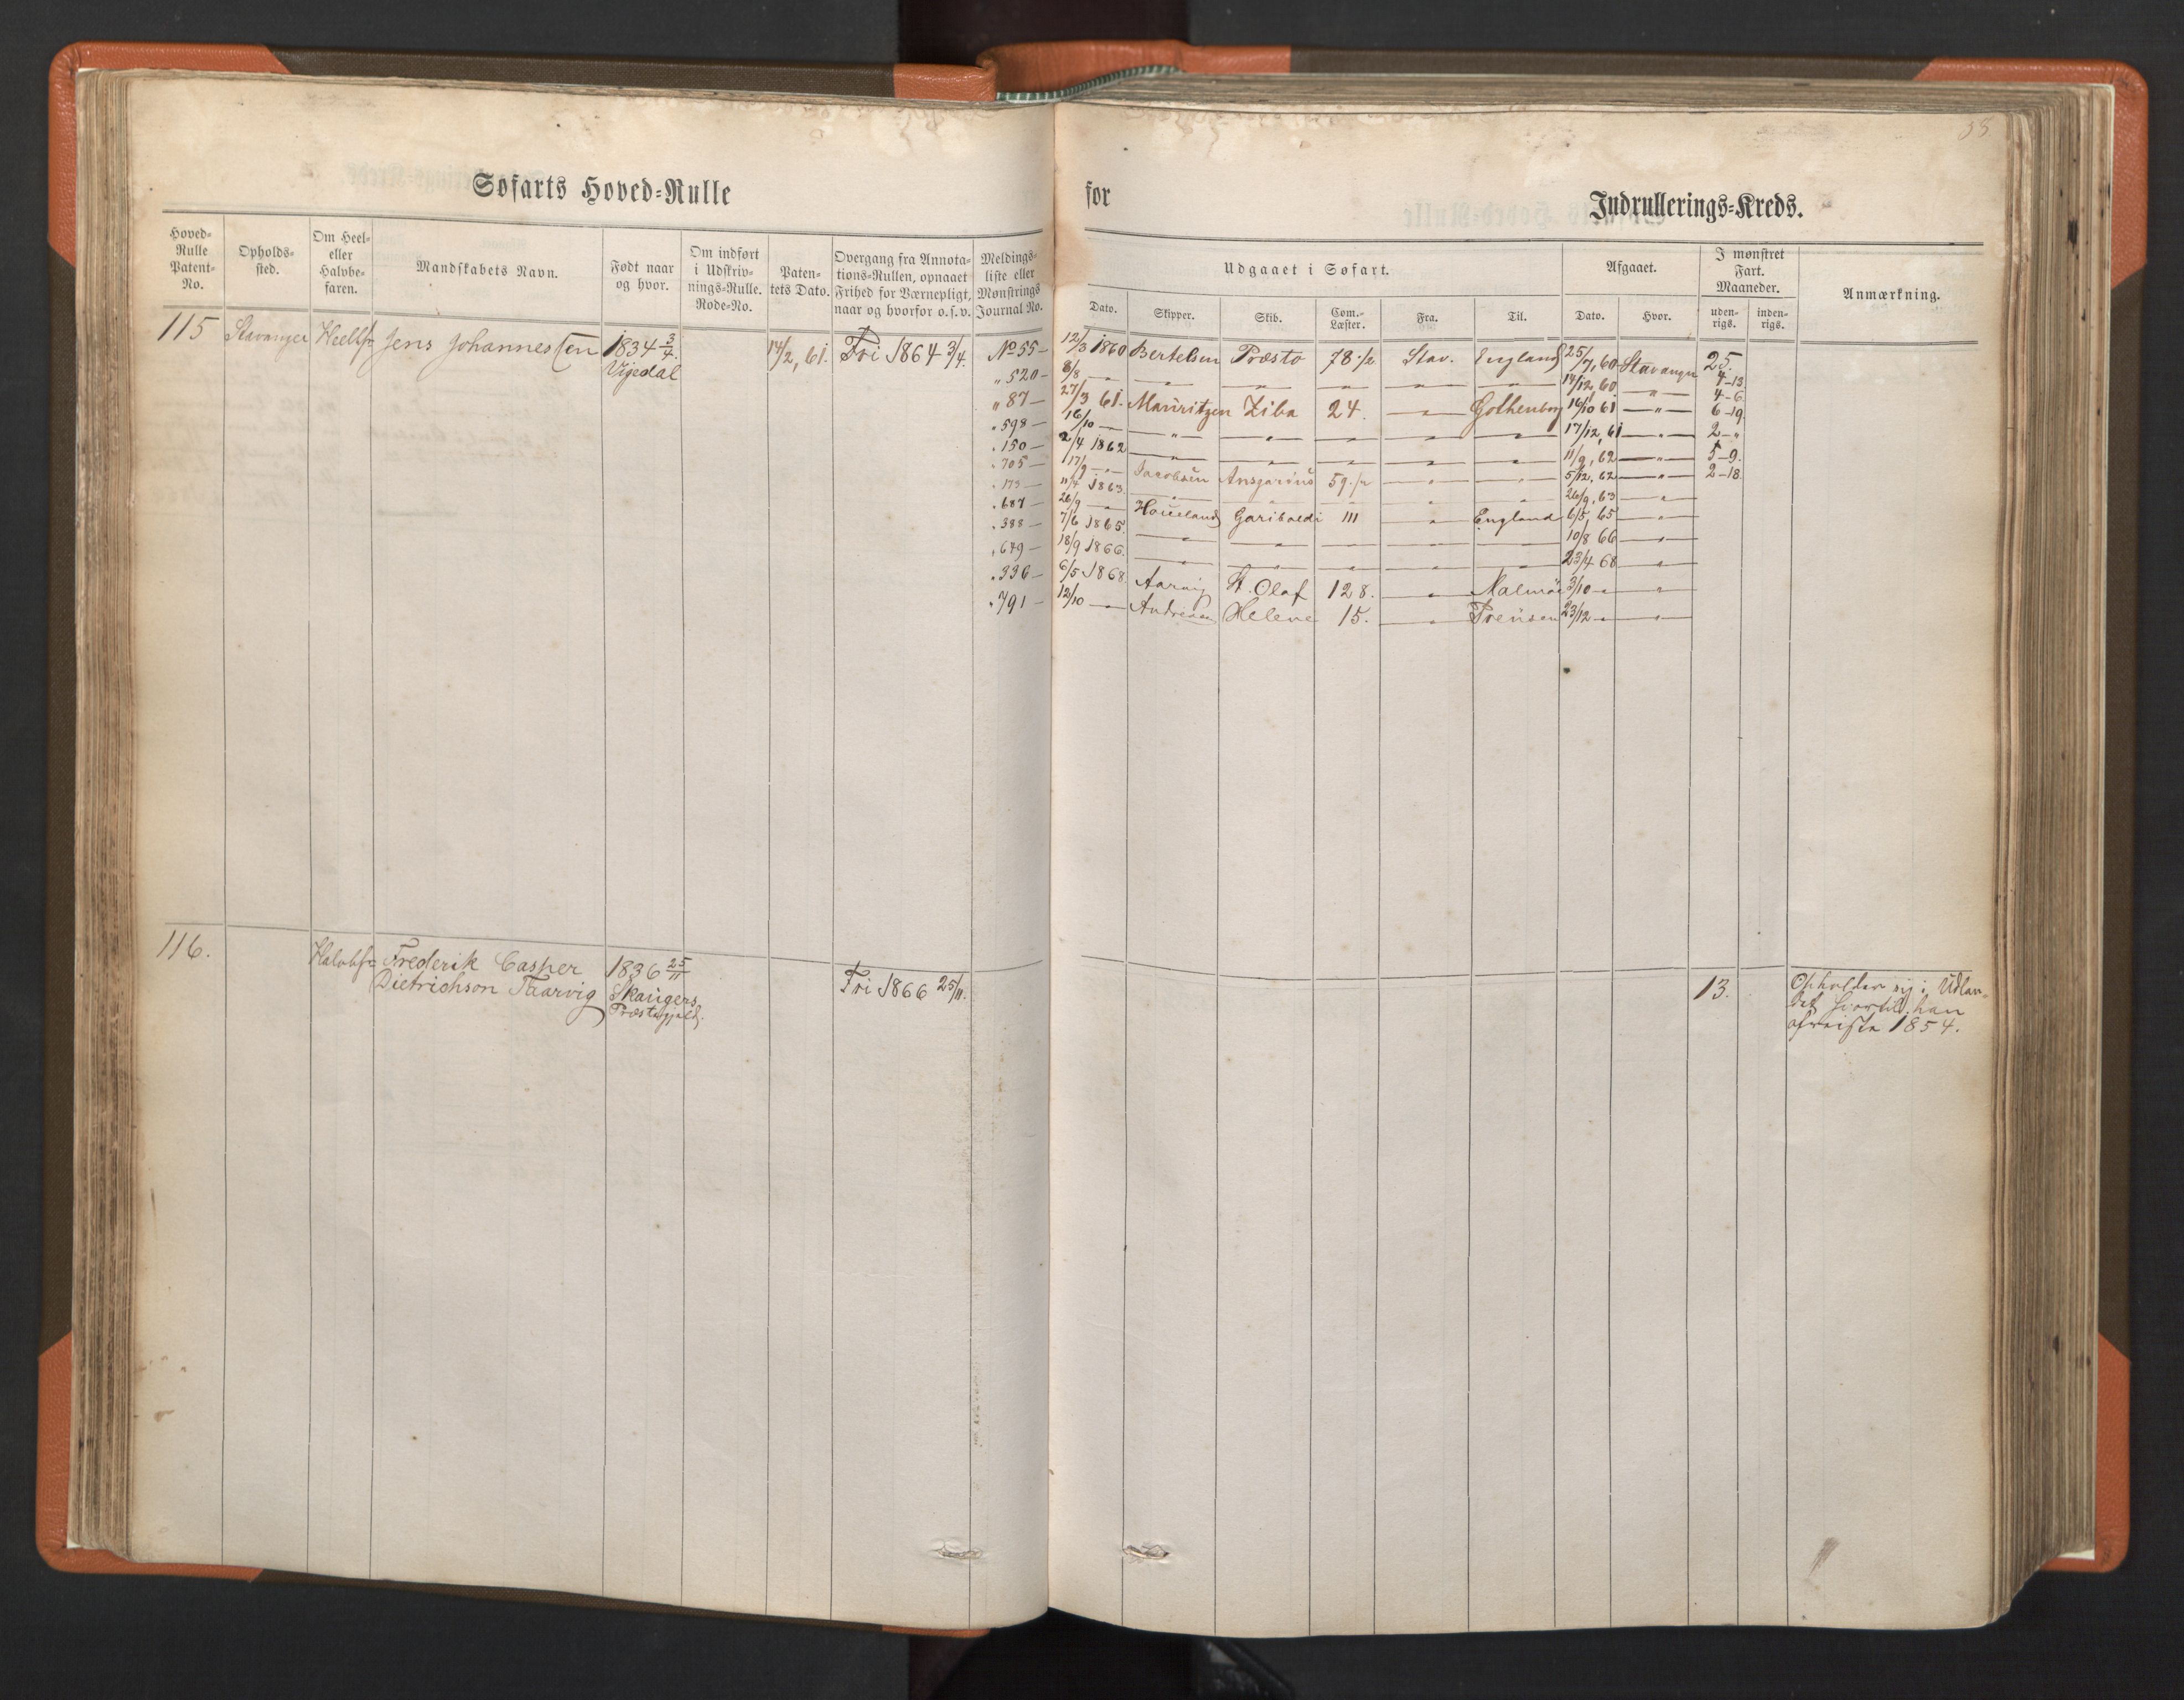 35
Søfarts Hoved-Rulle for Indrullerings-Kreds.
Hoved-Rulle Patent-No. | Opholds-sted. | Om Heel- eller Halvbe-faren. | Mandskabets Navn. | Født naar og hvor. | Om indført i Udskriv-nings-Rulle. Rode-No. | Paten-tets Dato. | Overgang fra Annota-tions-Rullen, opnaaet Frihed for Værnepligt, naar og hvorfor o.s.v. | Meldings-liste eller Mønstrings Journal No. | Udgaaet i Søfart. | Afgaaet. | I mønstret Fart. Maaneder. | Anmærkning.
Dato. | Skipper. | Skib. | Com.-Læster. | Fra. | Til. | Dato. | Hvor. | uden-rigs. | inden-rigs.
115 Stavanger Heelbf: Jens Johannessen 1834 3/4 14/2, 61. Fri 1864 3/4. No 55 – 12/3 1860 Bertelsen Præsto 78 1/2 Stav. England 25/7, 60 Stavanger 25.
Vigedal
" 520 – 8/8 — — — — — — 14/12, 60 — " — 4-13
" 87 – 27/3 61. Mauritzen Ziba 24. — Gothenborg 16/10 61 — " — 4-6
" 598 – 16/10 — — " — — — — — 17/12, 61 — " — 6-19
" 150 – 2/4 1862 — " — — — — — 11/9, 62 — " — 2-"
" 705 – 17/9 — Jacobsen Ansgarius 59 1/2 — — 5/12, 62 — " — 5-9.
" 173 – 11/4 1863. — — — " " 26/9, 63 — " 2-18.
" 687 – 26/9 — Haueland Garibaldi 111 — England 6/5, 65 — "
" 388 – 7/6 1865. — — — — — 10/8 66 — "
" 649 – 18/9 1866. — — — — — 23/4 68 — "
" 336 – 6/5 1868. Aarvig St. Olaf 128. — Malmöe 3/10 — " — "
" 791 – 12/10 — Andreasen Helene 15. — Preüsen 23/12 — " — "
116. Halvbf: Frederik Casper 1836 25/11
Dietrichson Taarvig Skaugers Præstegjeld. Fri 1866 25/11. 13.
Opholder sig i Udlan-
det hvortil han
afreiste 1854.